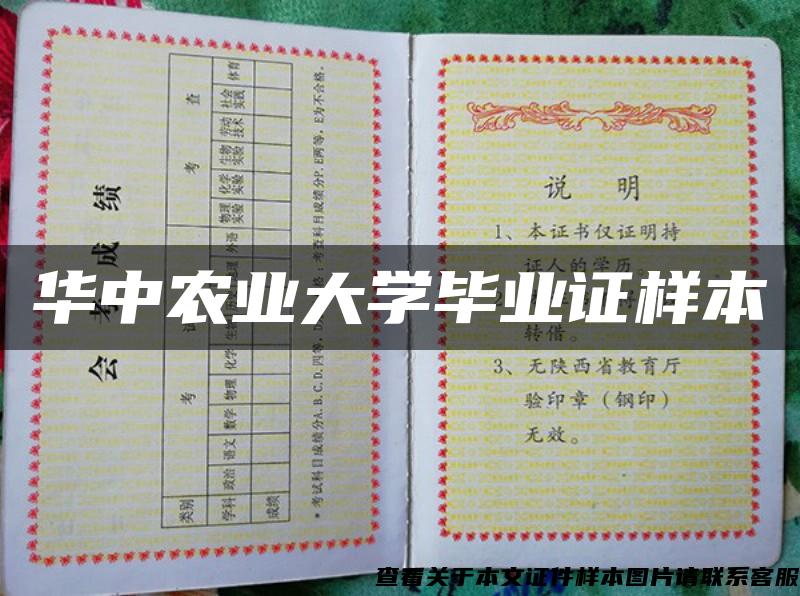 会考成绩
类别 考试 考查
学科 政治 语文 数学 物理 化学 生物 外语 物理实验 化学实验 生物实验 劳动技术 社会实践 体育
成绩
*考试科目成绩分A.B.C.D.四等，格；考查科目成绩分P、E两等，E为不合格。
说 明
1、本证书仅证明持
证人的学历。
2、
转借。
3、无陕西省教育厅
验印章（钢印）
无效。
华中农业大学毕业证样本
查看关于本文证件样本图片请联系客服